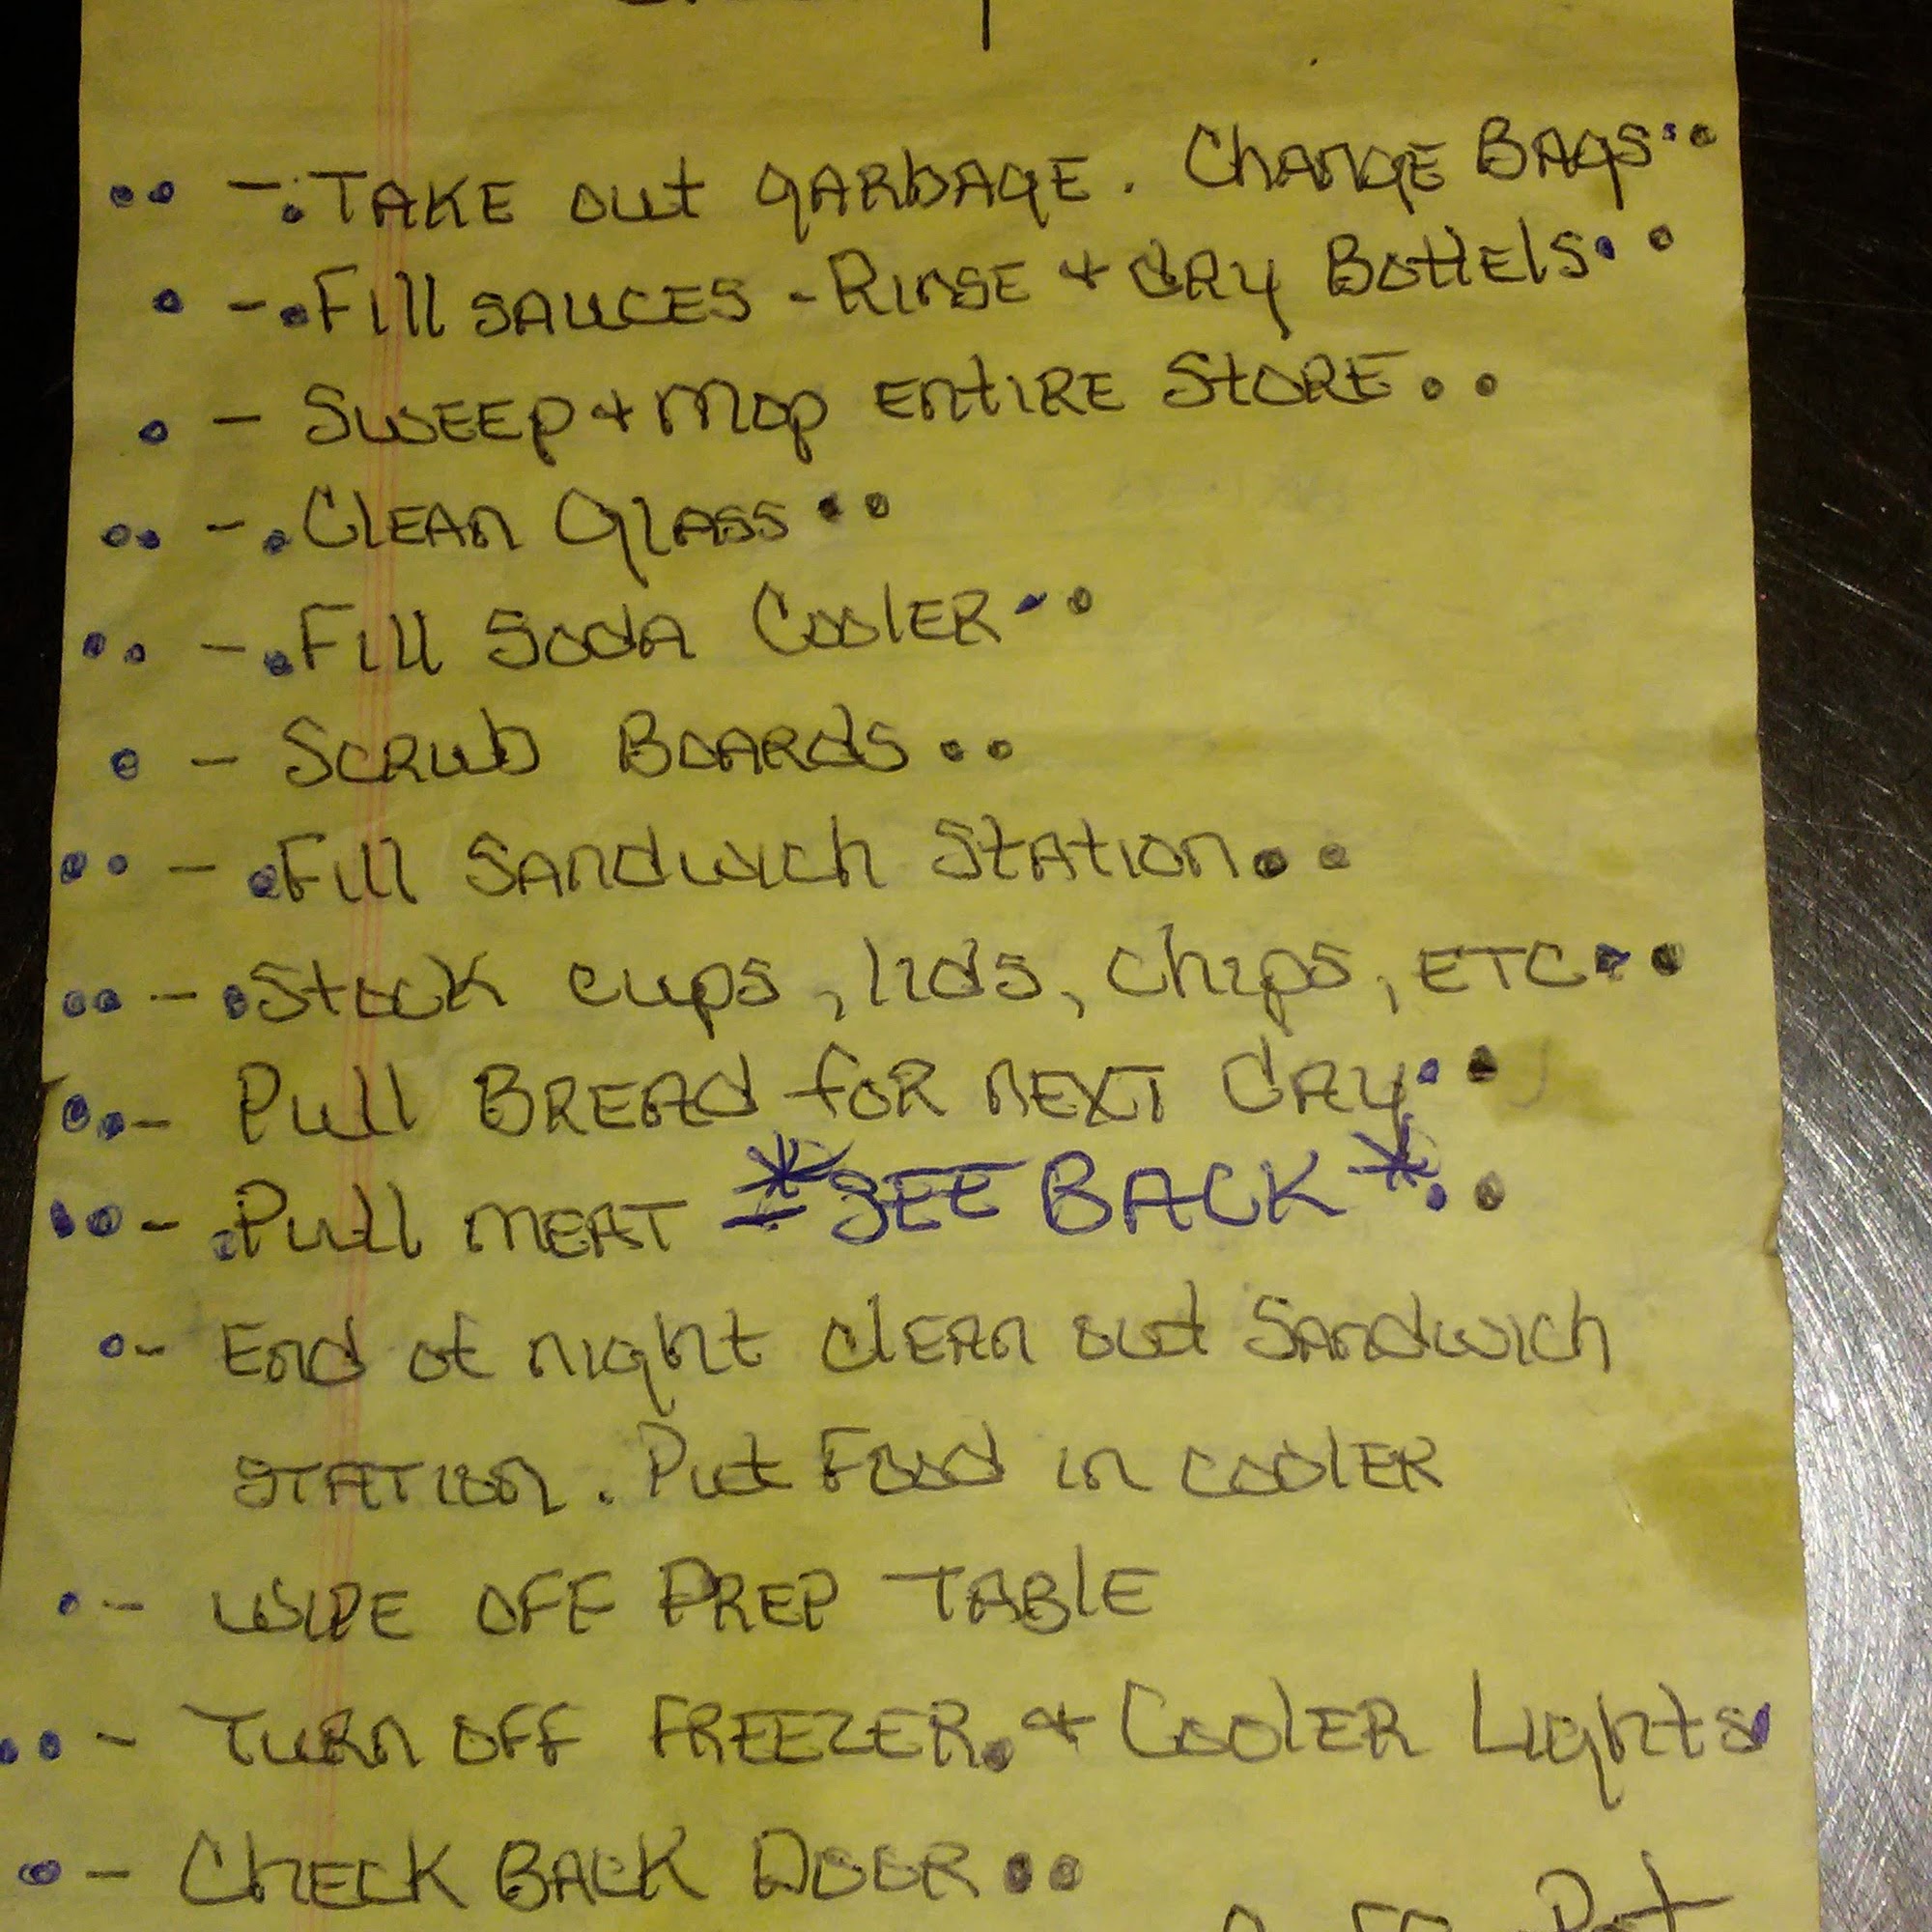 - TAKE out gARbAgE. ChANgE BAgS
- Fill SAUCES - RiNSE + dRy BottElS
- SwEEp + Mop ENtiRE StORE
- ClEAN glASS
- Fill SodA CoolER
- ScRub BoARdS
- Fill SANdwich StAtioN
- Stock cups, lids, chips, ETC
- Pull BREAd foR NEXT dAy
- Pull MEAT *SEE BACK*
- End of night clEAN out SANdwich
STATioN. Put Food in coolER
- WIPE OFF PREP TABlE
- TuRN OFF FREEZER + CoolER Lights
- ChECK BACK DooR